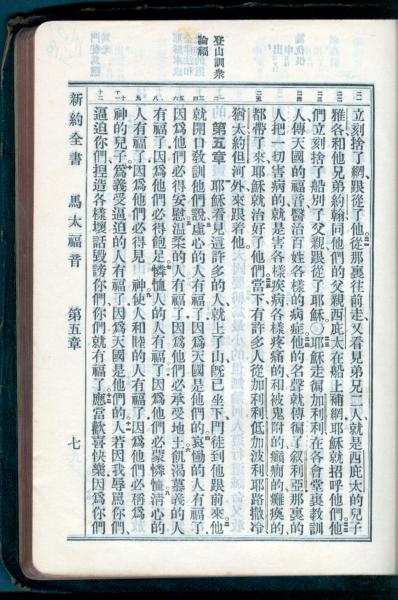 立刻捨了網跟從了他從那裏往前走又看見弟兄二人就是西庇太的兒子
雅各和他兄弟約翰同他們的父親西庇太在船上補網耶穌就招呼他們他
們立刻捨了船別了父親跟從了耶穌〇耶穌走徧加利利在各會堂裏教訓
人傳天國的福音醫治百姓各樣的病症他的名聲就傳徧了叙利亞那裏的
人把一切害病的就是害各樣疾病各樣疼痛的和被鬼附的癲癇的癱瘓的
都帶了來耶穌就治好了他們當下有許多人從加利利低加波利耶路撒冷
猶太約但河外來跟着他
第五章 耶穌看見這許多的人就上了山旣已坐下門徒到他跟前來他
就開口敎訓他們說虛心的人有福了因爲天國是他們的哀慟的人有福了
因爲他們必得安慰溫柔的人有福了因爲他們必承受地土飢渴慕義的人
有福了因爲他們必得飽足憐恤人的人有福了因爲他們必蒙憐恤清心的
人有福了因爲他們必得見神使人和睦的人有福了因爲他們必稱爲
神的兒子爲義受逼迫的人有福了因爲天國是他們的人若因我辱罵你們
逼迫你們捏造各樣壞話毀謗你們你們就有福了應當歡喜快樂因爲你們
登山訓衆
論福
新約全書 馬太福音 第五章 七